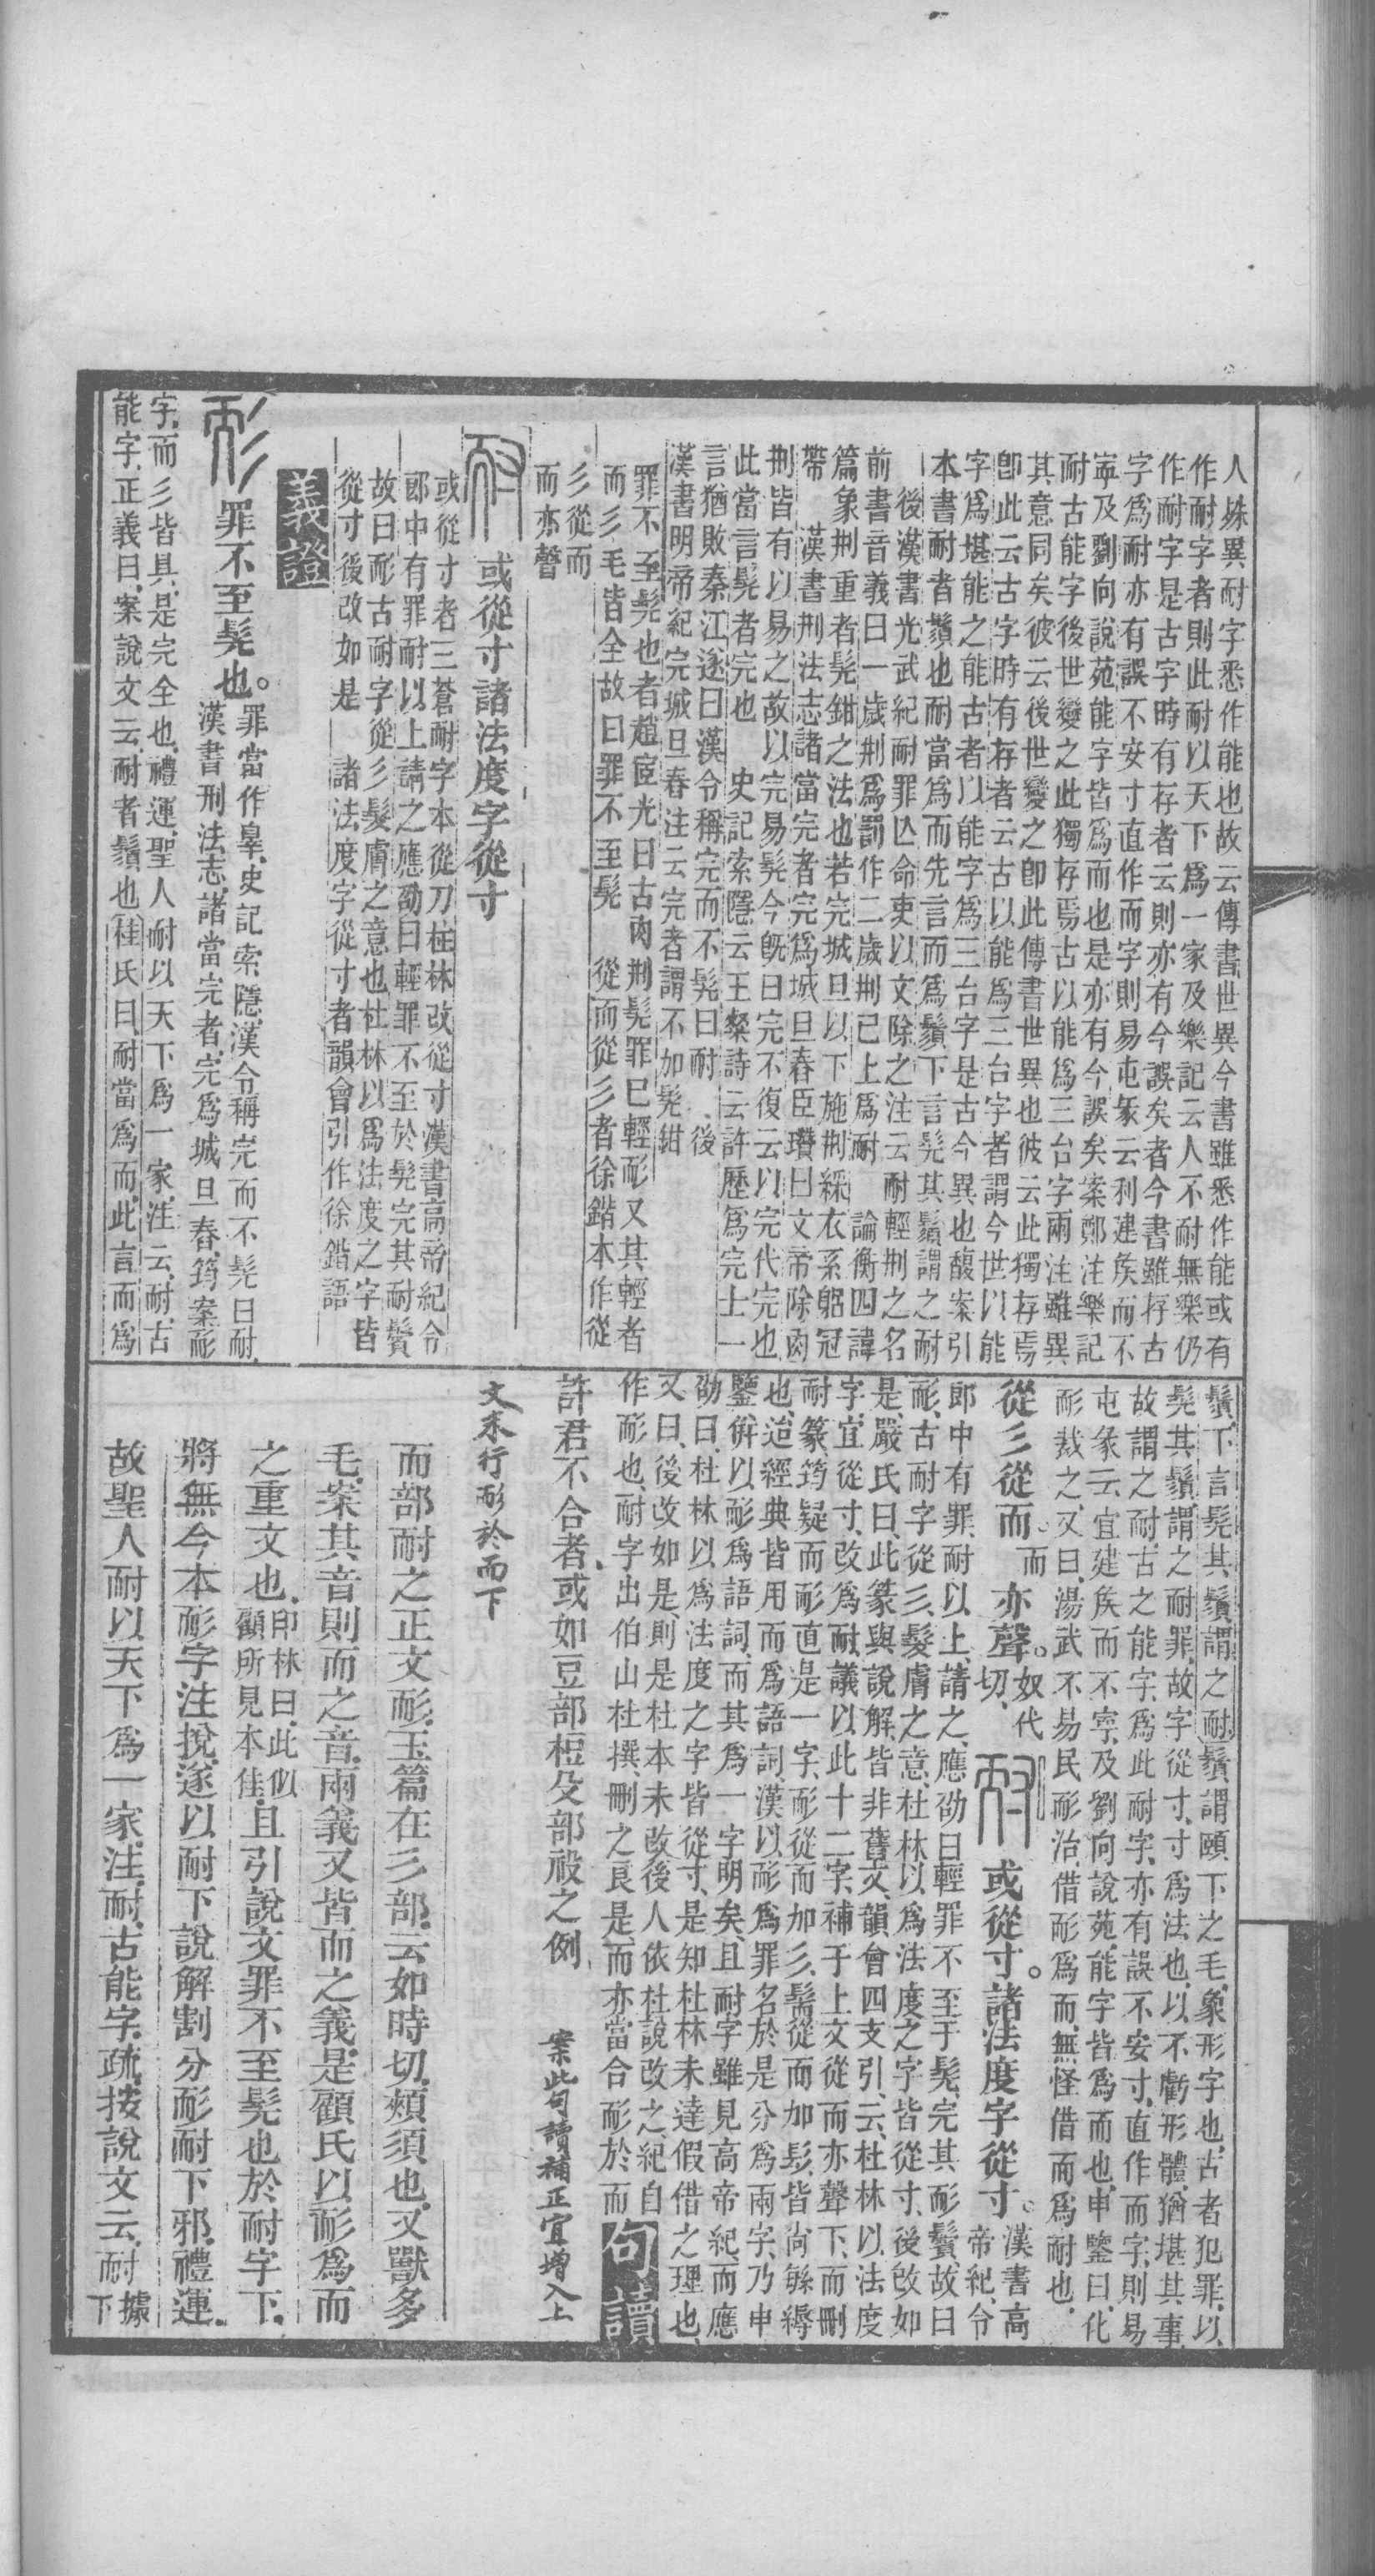 人殊異耐字悉作能也故云傳書世異今書雖悉作能或有
作耐字者則此耐以天下爲一家及樂記云人不耐無樂仍
作耐字是古字時有存者云則亦有今誤矣者今書雖存古
字爲耐亦有誤不安寸直作而字則易屯彖云利建矦而不
寍及劉向說苑能字皆爲而也是亦有今誤矣案鄭注樂記
耐古能字後世變之此獨存焉古以能爲三台字兩注雖異
其意同矣彼云後世變之卽此傳書世異也彼云此獨存焉
卽此云古字時有存者云古以能爲三台字者謂今世以能
字爲堪能之能古者以能字爲三台字是古今異也馥案引
本書耐者鬚也耐當爲而先言而爲鬚下言髡其鬚謂之耐
後漢書光武紀耐罪亾命吏以文除之注云耐輕刑之名
前書音義曰一歲刑爲罰作二歲刑已上爲耐　論衡四諱
篇象刑重者髡鉗之法也若完城旦以下施刑綵衣系躳冠
帶　漢書刑法志諸當完者完爲城旦舂臣瓚曰文帝除肉
刑皆有以易之故以完易髡今旣曰完不復云以完代完也
此當言髡者完也　史記索隱云王粲詩云許歷爲完士一
言猶敗秦江遂曰漢令稱完而不髡曰耐　後
漢書明帝紀完城旦舂注云完者謂不加髡鉗
罪不至髡也者趙宧光曰古肉刑髡罪已輕耏又其輕者
而彡毛皆全故曰罪不至髡　從而從彡者徐鍇本作從
彡從而
而亦聲
或從寸諸法度字從寸
或從寸者三蒼耐字本從刀杜林改從寸漢書高帝紀令
郎中有罪耐以上請之應劭曰輕罪不至於髡完其耐鬢
故曰耏古耐字從彡髮膚之意也杜林以爲法度之字皆
從寸後改如是　諸法度字從寸者韻會引作徐鍇語
義證
耏罪不至髡也。罪當作辠、史記索隱、漢令稱完而不髡曰耐、
漢書刑法志、諸當完者、完爲城旦舂、筠案耏
字、而彡皆具、是完全也、禮運、聖人耐以天下爲一家、注云、耐、古
能字、正義曰、案說文云、耐者鬚也、桂氏曰、耐當爲而、此言而爲
鬚、下言髡其鬚謂之耐、鬚謂頤下之毛、象形字也、古者犯罪、以
髡其鬚、謂之耐罪、故字從寸、寸爲法也、以不虧形體、猶堪其事、
故謂之耐、古之能字、爲此耐字、亦有誤不安寸、直作而字、則易
屯彖云、宜建矦而不寧、及劉向說苑、能字皆爲而也、申鑒曰、化
耏裁之、又曰、湯武不易民耏治、借耏爲而、無怪借而爲耐也、
從彡從而。而亦聲。奴代切、耐或從寸。諸法度字從寸。漢書高帝紀、令
郎中有罪耐以上、請之、應劭曰、輕罪不至于髡、完其耏鬢、故曰
耏、古耐字從彡、髮膚之意、杜林以爲法度之字皆從寸、後改如
是、嚴氏曰、此篆與說解、皆非舊文、韻會四支引、云、杜林以法度
字、宜從寸、改爲耐、議以此十二字、補于上文從而亦聲下、而刪
耐篆、筠疑而耏直是一字、耏從而加彡、髵從而加髟、皆尙緐縟
也、迨經典皆用而爲語詞、漢以耏爲罪名、於是分爲兩字、乃申
鑒併以耏爲語詞、而其爲一字明矣、且耐字雖見高帝紀、而應
劭曰、杜林以爲法度之字皆從寸、是知杜林未達假借之理也、
又曰、後改如是、則是杜本未改、後人依杜說改之、紀自
作耏也、耐字出伯山杜撰、刪之良是、而亦當合耏於而
句讀
許君不合者、或如豆部梪殳部祋之例　案此句讀補正宜增入上
文末行耏於而下
而部耐之正文耏、玉篇在彡部、云如時切、頰須也、又獸多
毛、案其音則而之音、兩義又皆而之義、是顧氏以耏爲而
之重文也、印林曰、此似顧所見本佳、且引說文罪不至髡也於耐字下、
將無今本耏字注挩、遂以耐下說解割分耏耐下邪、禮運、
故聖人耐以天下爲一家、注、耐、古能字、疏、按說文云、耐據下